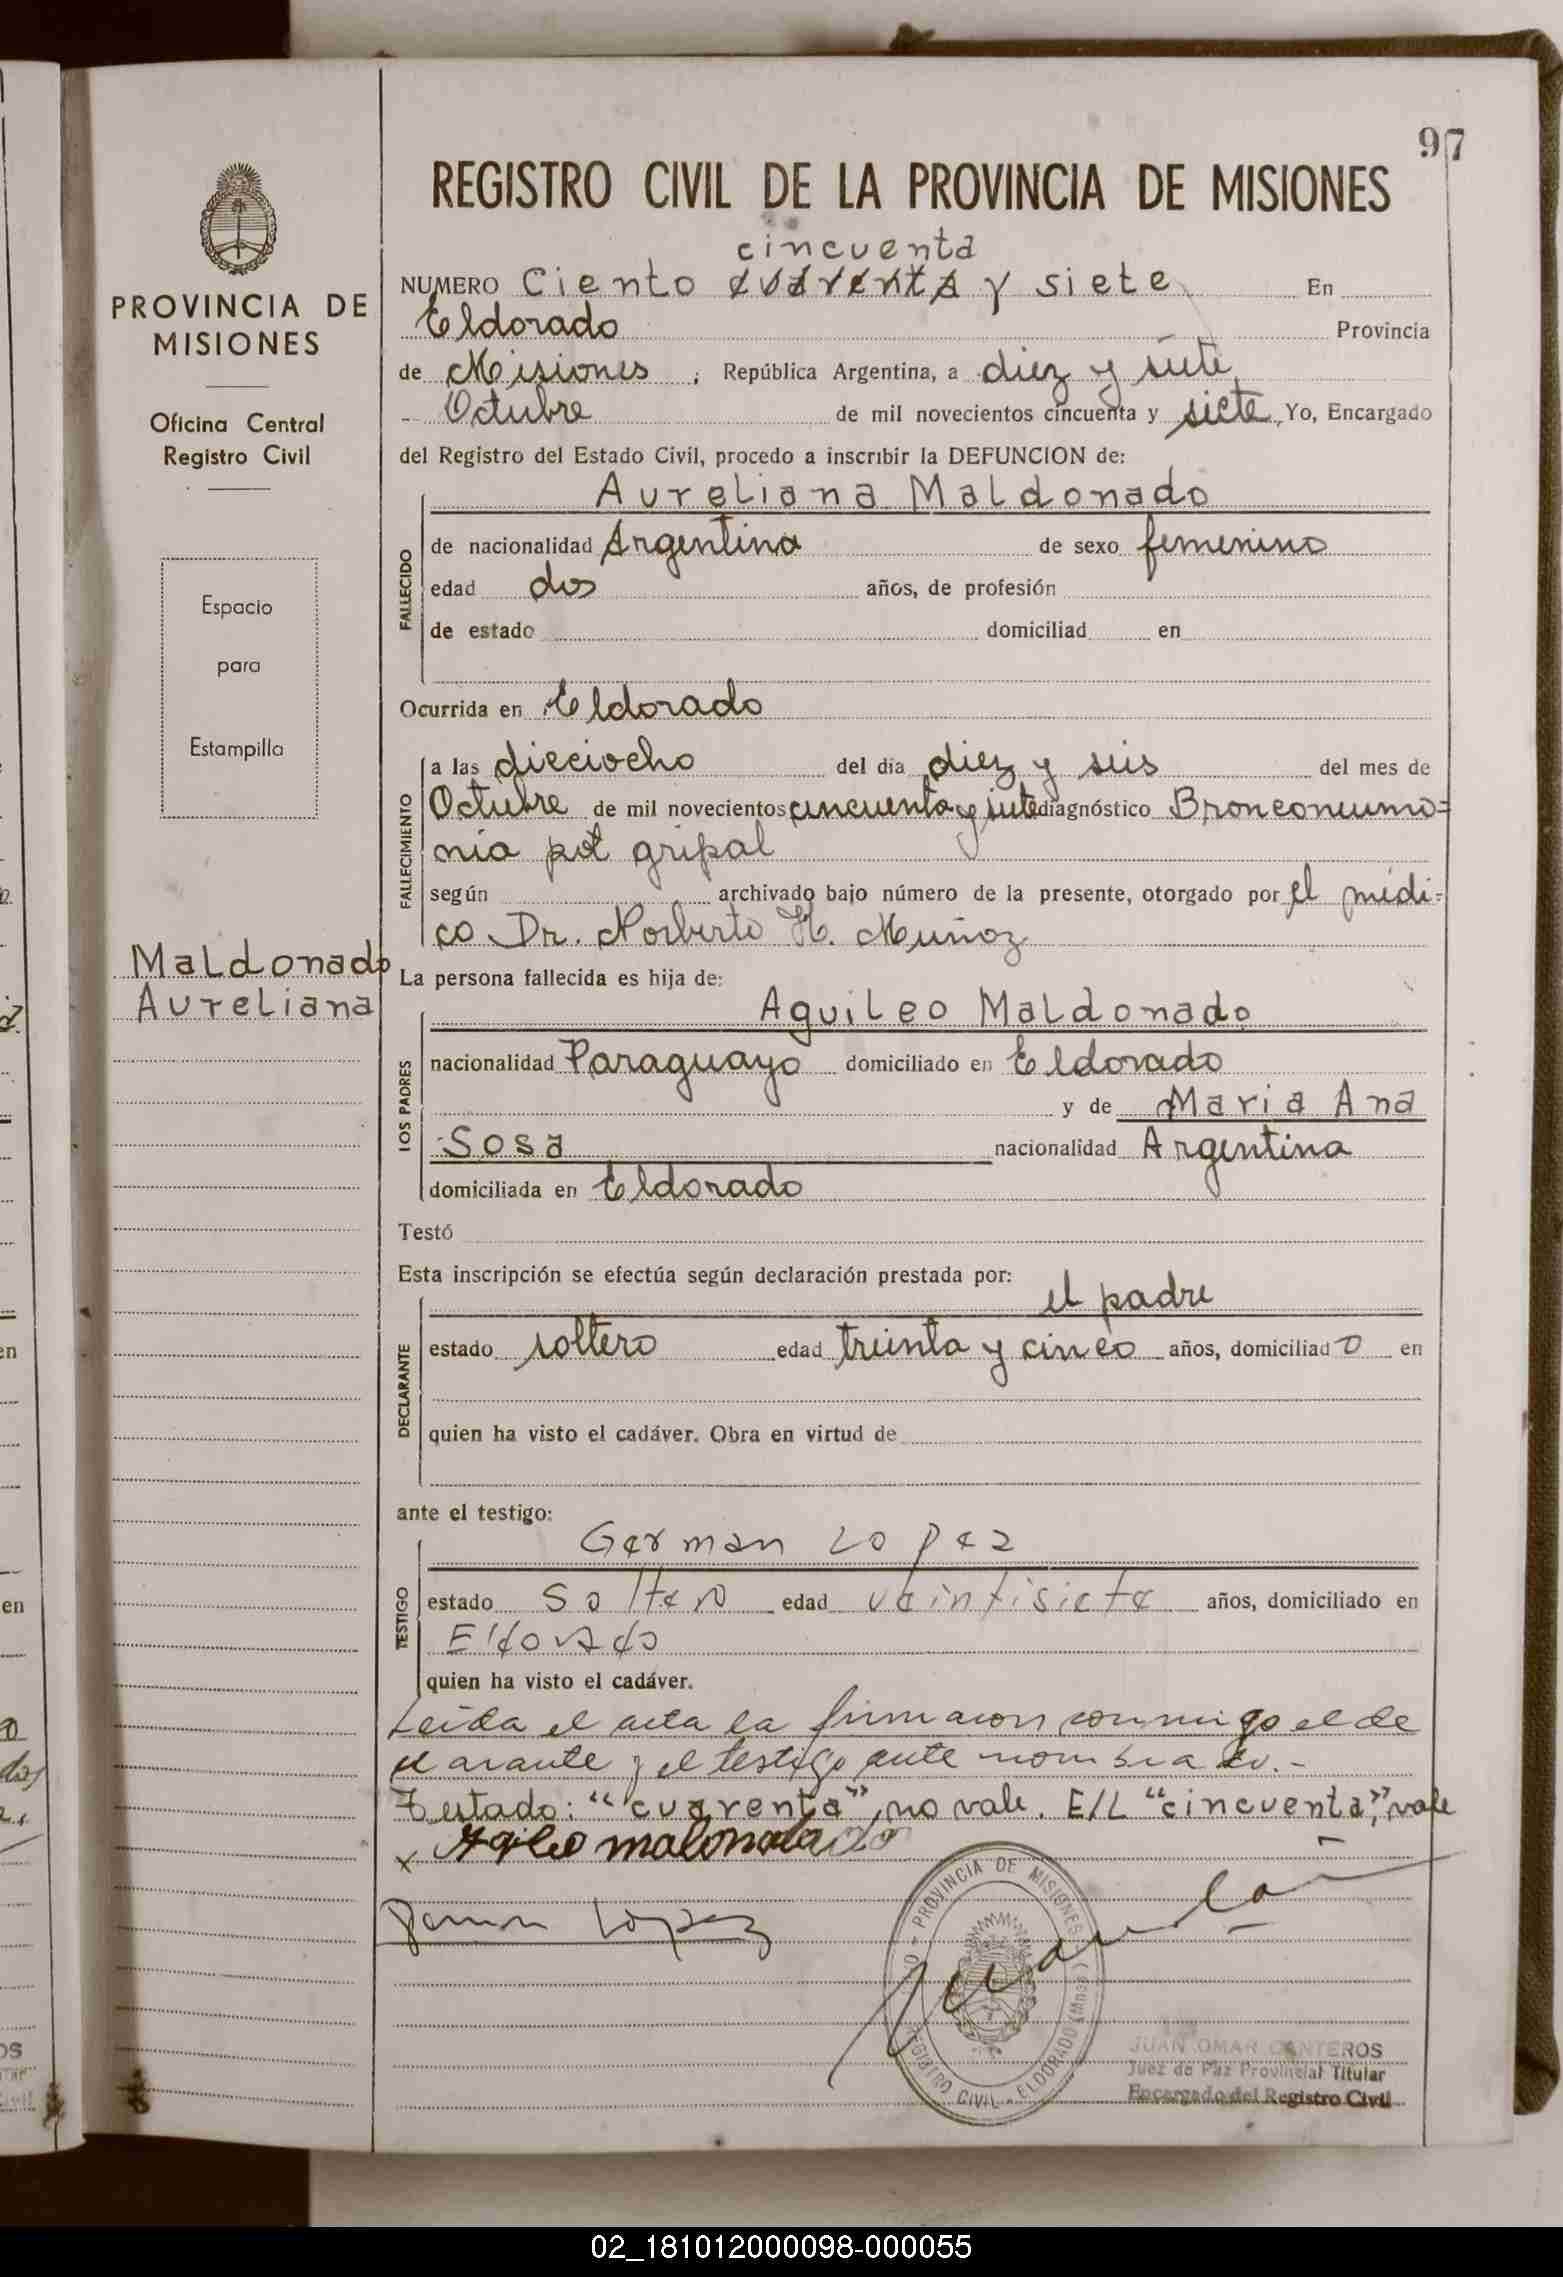 97
REGISTRO CIVIL DE LA PROVINCIA DE MISIONES
PROVINCIA DE
MISIONES
Oficina Central
Registro Civil
Espacio
para
Estampilla
Maldonado
Aureliana
cincuenta
NUMERO Ciento cuarenta y siete En
Eldorado Provincia
de Misiones, República Argentina, a diez y siete
Octubre de mil novecientos cincuenta y siete, Yo, Encargado
del Registro del Estado Civil, procedo a inscribir la DEFUNCION de:
Aureliana Maldonado
FALLECIDO
de nacionalidad Argentina de sexo femenino
edad dos años, de profesión
de estado domiciliad en
Ocurrida en Eldorado
FALLECIMIENTO
a las dieciocho del día diez y seis del mes de
Octubre de mil novecientos cincuenta y siete diagnóstico Bronconeumo=
nia pot gripal
según archivado bajo número de la presente, otorgado por el médi-
co Dr. Norberto H. Muñoz
La persona fallecida es hija de:
Aguileo Maldonado
LOS PADRES
nacionalidad Paraguayo domiciliado en Eldorado
y de Maria Ana
Sosa nacionalidad Argentina
domiciliada en Eldorado
Testó
Esta inscripción se efectúa según declaración prestada por:
el padre
DECLARANTE
estado soltero edad treinta y cinco años, domiciliado en
quien ha visto el cadáver. Obra en virtud de
ante el testigo:
German Lopez
TESTIGO
estado soltero edad veintisiete años, domiciliado en
Eldorado
quien ha visto el cadáver.
Leida el acta la firmaron conmigo el de
clarante y el testigo ante nombrado.-
Testado: "cuarenta", no vale. E/L "cincuenta", vale
x Agileo maldonado
Lopez
PROVINCIA DE MISIONES
REGISTRO CIVIL - ELDORADO (Mnes.)
JUAN OMAR CANTEROS
Juez de Paz Provincial Titular
Encargado del Registro Civil
02_181012000098-000055